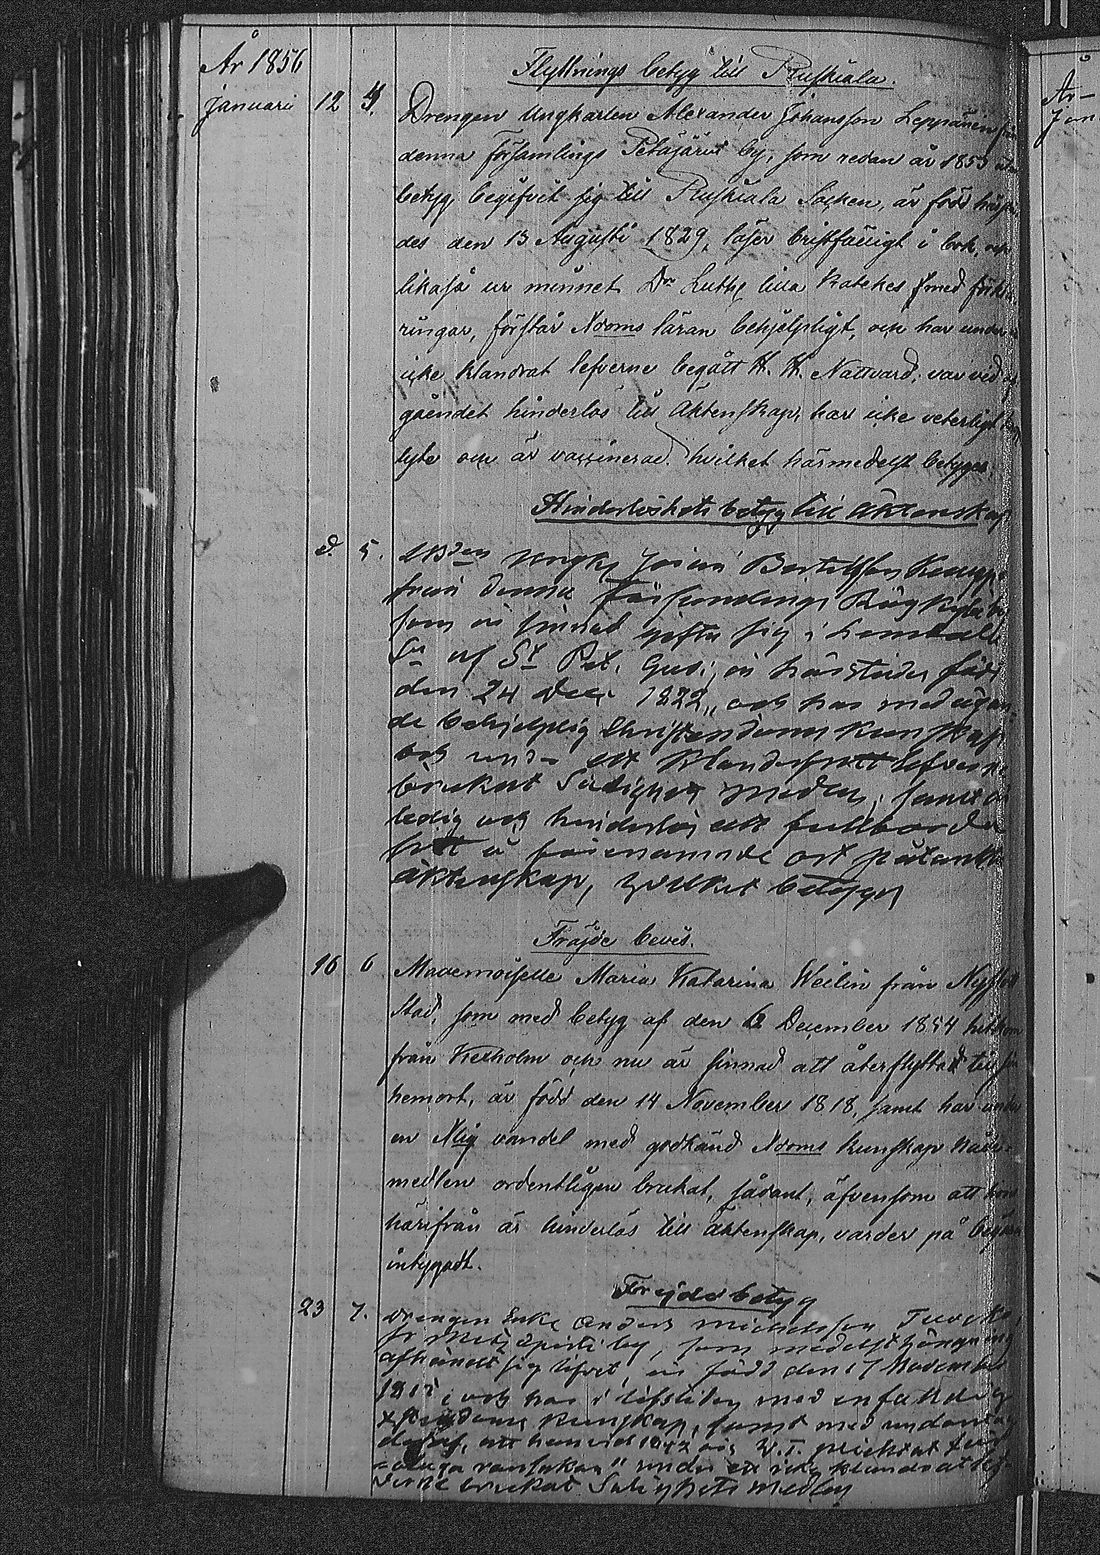 År 1856
Flyttnings betyg till Ruskiala.
Januarii 12 4. Drengen Ungkarlen Alexander Johansson Leppänen från
denna församlings Petäjärvi by, som redan år 1855
betyg begifvit sig till Ruskiala Socken, är född härstä
des den 13 Augusti 1829, läser bristfälligt i bok, och
likaså ur minnet Dr Luth: lilla Katekes med förkla
ringar, förstår Ndoms läran behjelpligt, och har under
icke klandrat lefverne begått H. H. Nattvard; var vid af
gåendet hinderlös till Äktenskap, har icke veterligt
lyte och är vaccinerad. hvilket härmedelst betygas.
Hinderlöshets betyg till Äktenskap
d. 5. Bertilsson
från denna Församlings
som är sinnad gifta sig i
af St Pet. Guv; är härstädes född
den 24 Dec. 1822, och har medelgån
de behjelplig Christendoms Kunskap
och under ett klanderfritt lefverne
brukat Salighets medlen, samt är
ledig och hinderlös att fullborda
sitt å förenämnde ort påtänkta
äktenskap, hvilket betygas
Fräjde bevis.
16 6 Mademoiselle Maria Katarina Weilin från Nyslott
Stad, som med betyg af den 12 December 1854 hitkom
från Kexholm och nu är sinnad att återflytta till sin
hemort, är född den 14 November 1818, samt har under
en Xlig vandel med godkänd Ndoms kunskap Nåde-
medlen ordentligen brukat, sådant, äfvensom att hon
härifrån är hinderlös till äktenskap, varder på begäran
intygadt.
Frejdebetyg
23 7. Drengen Enkl Anders Michelsson
by, som medelst hängning
afhändt sig lifvet är född den 17 November
och har i lifstiden med enfaldig
Xstendoms kunskap, samt med undantag
deraf, att han vid 1842 års W. T. pliktat för
under ett icke klandradt lef-
verne brukat Salighets medlen
År
Jan